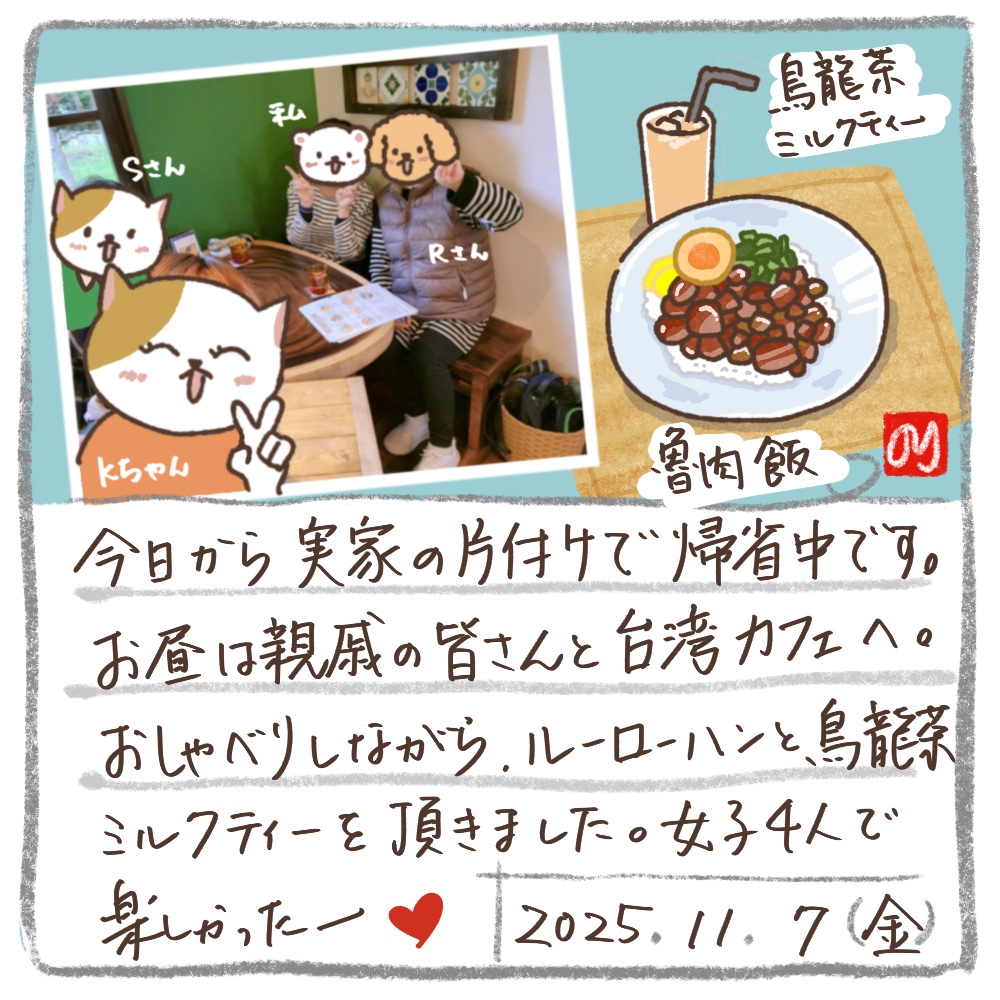 Sさん
私
Rさん
Kちゃん
烏龍茶
ミルクティー
魯肉飯
今日から実家の片付けで帰省中です。
お昼は親戚の皆さんと台湾カフェへ。
おしゃべりしながら、ルーローハンと烏龍茶
ミルクティーを頂きました。女子4人で
楽しかったー
2025.11.7(金)